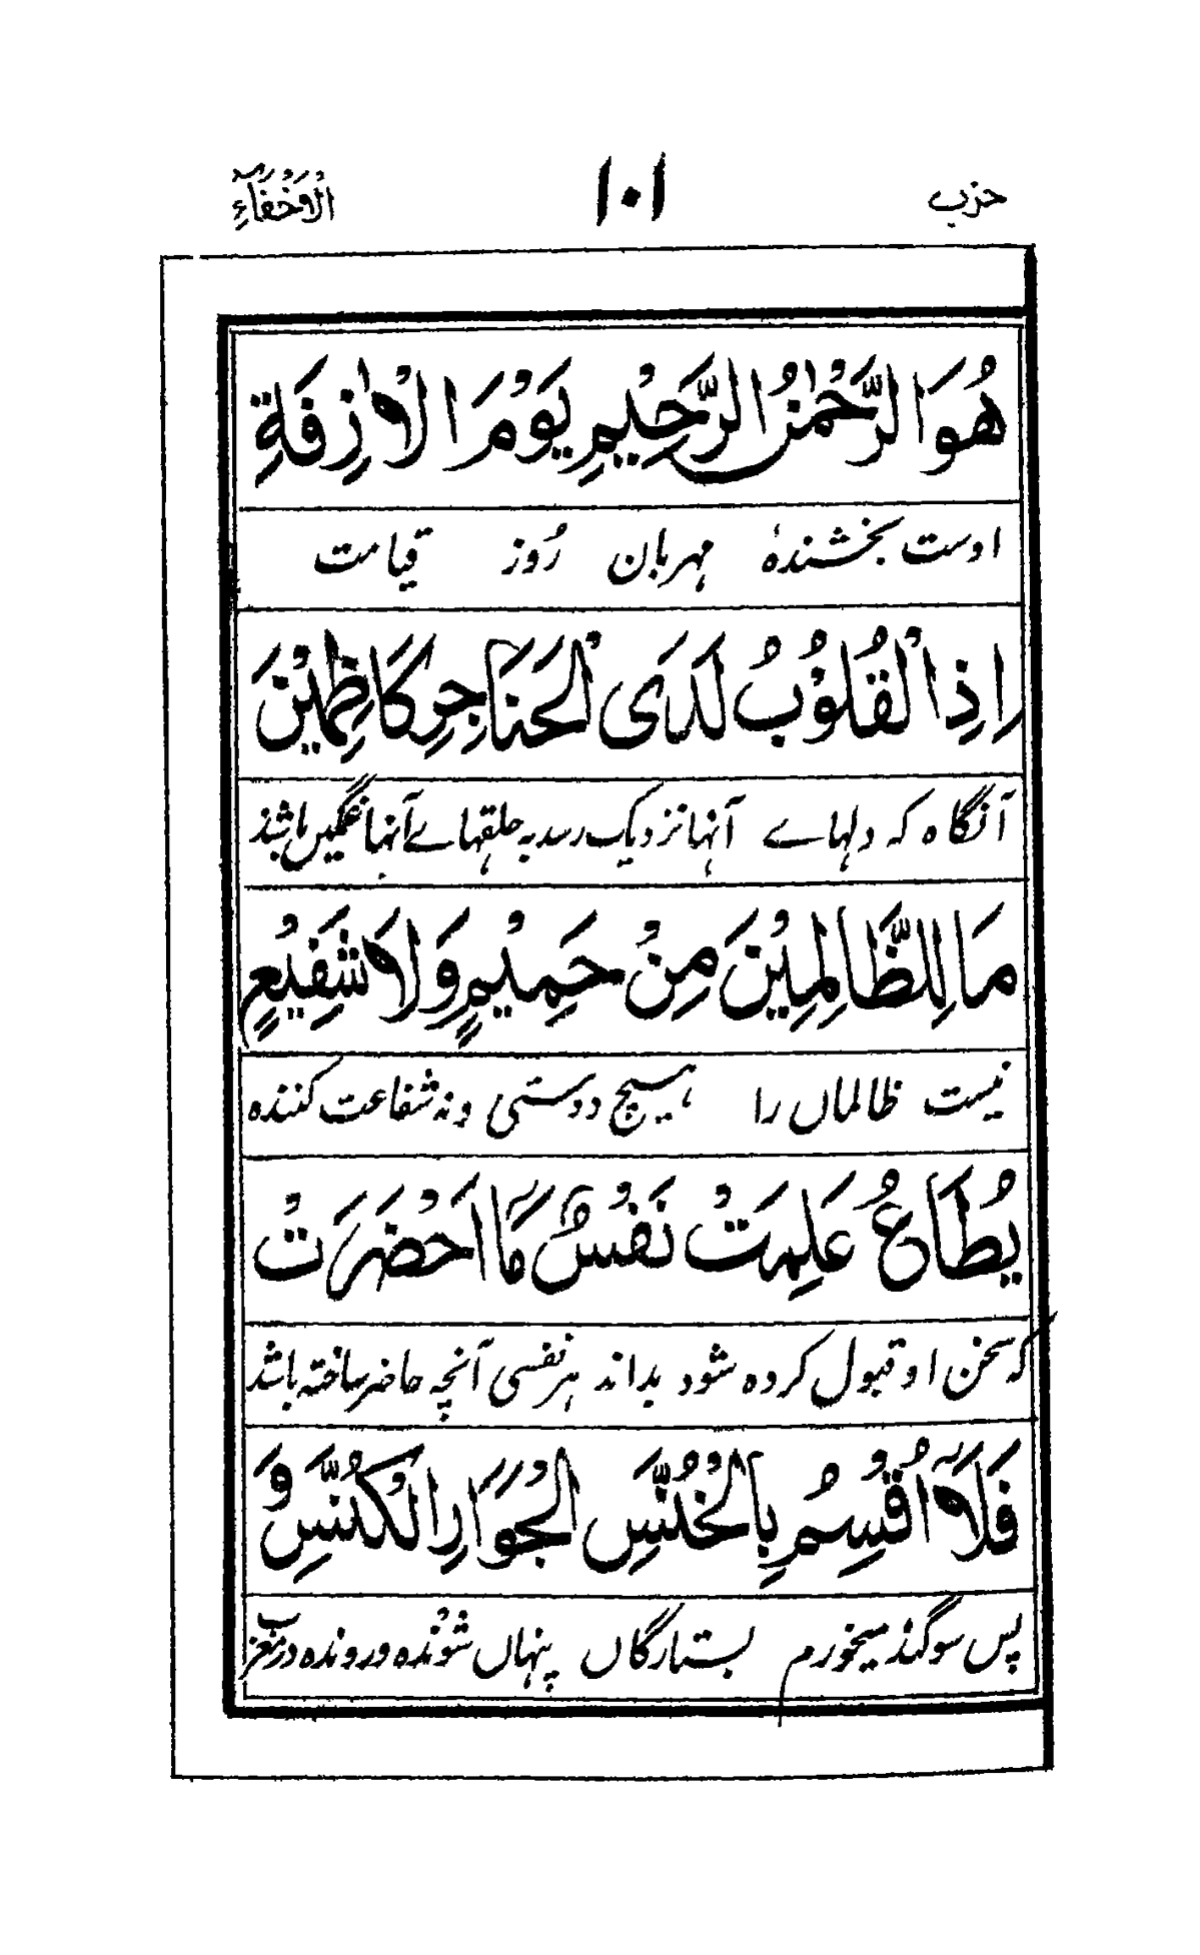 حزب ۱۰۱ الاخفاء
هُوَ الرَّحْمٰنُ الرَّحِيْمِ يَوْمَ الْاٰزِفَةِ
اوست بخشندهٔ مهربان رُوز قیامت
اِذِ الْقُلُوْبُ لَدَى الْحَنَاجِرِ كَاظِمِيْنَ
آنگاه که دلهاے آنها نزدیک رسد به حلقهاے آنها غمگین باشند
مَا لِلظَّالِمِيْنَ مِنْ حَمِيْمٍ وَّلَا شَفِيْعٍ
نیست ظالماں را هیچ دوستی و نه شفاعت کننده
يُطَاعُ عَلِمَتْ نَفْسٌ مَّا اَحْضَرَتْ
که سخن او قبول کرده شود بداند هر نفسی آنچه حاضر ساخته باشد
فَلَآ اُقْسِمُ بِالْخُنَّسِ الْجَوَارِ الْكُنَّسِ وَ
پس سوگند میخورم بستارگاں پنهاں شونده و رونده در مغرب